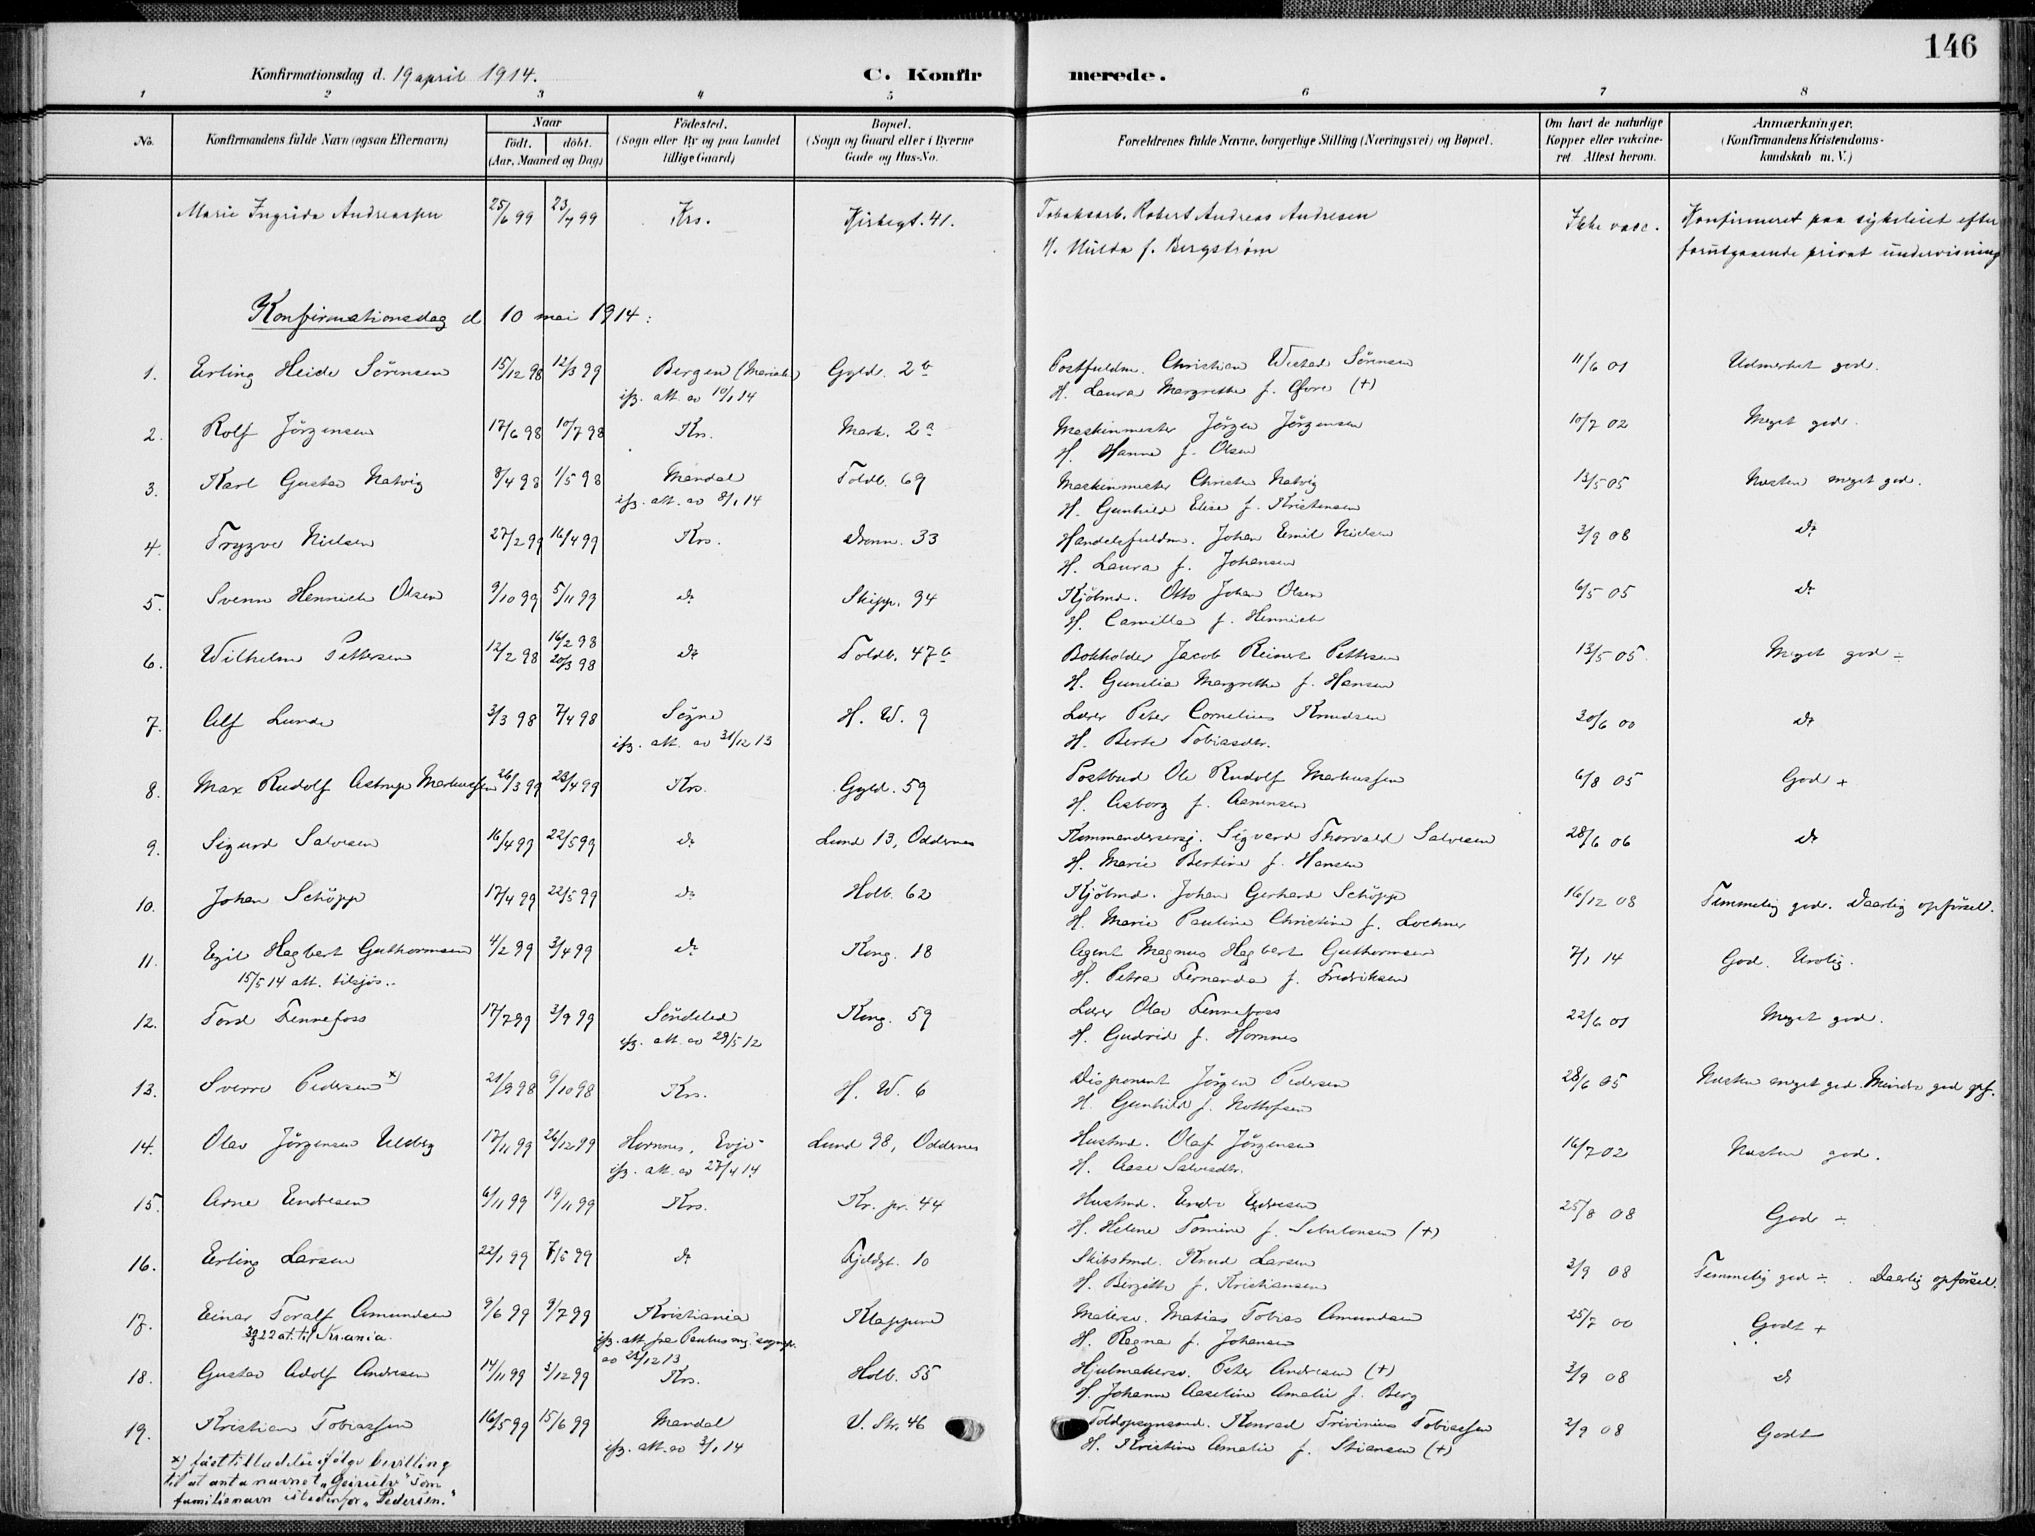 146
Konfirmationsdag d. 19 april 1914. C. Konfirmerede.
1 2 3 4 5 6 7 8
No. Konfirmandens fulde Navn (ogsaa Efternavn) Naar født. døbt. (Aar, Maaned og Dag) Fødested. (Sogn eller By og paa Landet tillige Gaard) Bopæl. (Sogn og Gaard eller i Byerne Gade og Hus-No. Forældrenes fulde Navne, borgerlige Stilling (Næringsvei) og Bopæl. Om havt de naturlige Kopper eller vakcineret Attest herom. Anmærkninger. (Konfirmandens Kristendomskundskab m. V.)
Marie Ingrida Andreassen 25/6 99 23/7 99 Krs. Kirkegt. 41. Tobaksarb. Robert Andreas Andresen Ikke vacc. Konfirmeret paa sykeleiet efter
H. Hulda f. Bergstrøm forutgaaende privat undervisning
Konfirmationsdag d 10 mai 1914:
1. Erling Heide Sörensen 15/12 98 12/3 99 Bergen Gyld. 2b Postfuldm. Christian Sörensen 11/6 01 Udmerket god.
ifg. att. av 10/1 14 H. Laura Margrethe f. (+)
2. Rolf Jörgensen 17/6 98 10/7 98 Krs. Mark. 2a Maskinmester Jörgen Jörgensen 10/7 02 Meget god.
H. Hanna f. Olsen
3. Karl Gustav Natvig 8/4 98 1/5 98 Mandal Toldb. 69 Maskinmester Christen Natvig 13/5 05 Næsten meget god.
ifg. att. av 8/1 14 H. Gunhild Elise f. Kristensen
4. Trygve Nielsen 27/2 99 16/4 99 Krs. Dronn. 33 Handelsfuldm. Johan Emil Nielsen 3/9 08 do
H. Laura f. Johansen
5. Svenn Hennich Olsen 9/10 99 5/11 99 do Skipp. 94 Kjöbmd. Otto Johan Olsen 6/5 05 do
H. Camilla f. Hennich
6. Wilhelm Pettersen 12/2 98 16/2 98 20/3 98 do Toldb. 47b Bokholder Jacob Reinert Pettersen 13/5 05. Meget god ÷
H. Gunelia Margrethe f. Hansen
7. Alf Lunde 3/3 98 7/4 98 Sögne H. W. 9 Lærer Peter Cornelius Knudsen 30/6 00 do
ifg. att. av 31/12 13 H. Berte Tobiasdtr.
8. Max Rudolf Astrup Markussen 26/3 99 23/4 99 Krs. Gyld. 59 Postbud Ole Rudolf Markussen 6/8 05 God +
H. Asborg f. Asmensen
9. Sigurd Salvesen 16/4 99 22/5 99 do Lund 13, Oddernes Kommandersersj. Sigvard Thorvald Salvesen 28/6 06 do
H. Marie Bertine f. Hansen
10. Johan Schöpp 17/4 99 22/5 99 do Holb. 62 Kjöbmd. Johan Gerhard Schöpp 16/12 08 Temmelig god. Daarlig opförsel.
H. Marie Pauline Christine f. Lochner
11. Egil Hagbert Guthormsen 4/2 99 3/4 99 do Kong. 18 Agent Magnus Hagbert Guthormsen 7/1 14 God. Urolig.
15/5 14 att. tilsjøs.. H. Petra Fernanda f. Fredriksen
12. Tord Fennefoss 17/7 99 3/9 99 Söndeled Kong. 59 Lærer Olav Fennefoss 22/6 01 Meget god.
ifg. att. av 29/5 12 H. Gudrid f. Hornnes
13. Sverre Pedersen x) 21/9 98 9/10 98 Krs. H. W. 6 Disponent Jörgen Pedersen 28/6 05 Næsten meget god. Mindre god opf.
H. Gunhild f. Nottofsen
14. Olav Jörgensen Uldberg 17/11 99 26/12 99 Hornnes, Evje Lund 98, Oddernes Hustmd. Olaf Jörgensen 16/7 02 Næsten god.
ifg. att. av 27/4 14 H. Aase Salvesdtr.
15. Arne Endresen 6/11 99 19/11 99 Krs. Kr. pr. 44 Hustmd. Endre Endresen 25/8 08 God ÷
H. Helene Tomine f. Sebulonsen (+)
16. Erling Larsen 22/1 99 7/5 99 do Fjeldgt. 10 Skibstmd. Knud Larsen 3/9 08 Temmelig god ÷. Daarlig opförsel.
H. Birgitte f. Kristiansen
17. Einar Toralf Amundsen 9/6 99 9/7 99 Kristiania Klappene Malersv. Matias Tobias Amundsen 25/7 00 Godt +
22 at. til Kr.ania. ifg. att. fra Paulus mg. sognepr. H. Ragna f. Johansen
av 23/12 13
18. Gustav Adolf Andresen 14/11 99 3/12 99 Krs. Holb. 55 Hjulmakersv. Peter Andresen (+) 3/9 08 do
H. Johanne Aseline Amalie f. Berg
19. Kristian Tobiassen 16/5 99 15/6 99 Mandal V. Str. 46 Toldopsynsmd. Konrad Trivinius Tobiassen 2/9 08 Godt
ifg. att. av 3/1 14 H. Kristine Amalie f. Stiansen (+)
x) faat tilladelse ifølge bevilling
til at anta navnet "Geirulv" som
familienavn istedenfor "Pedersen."